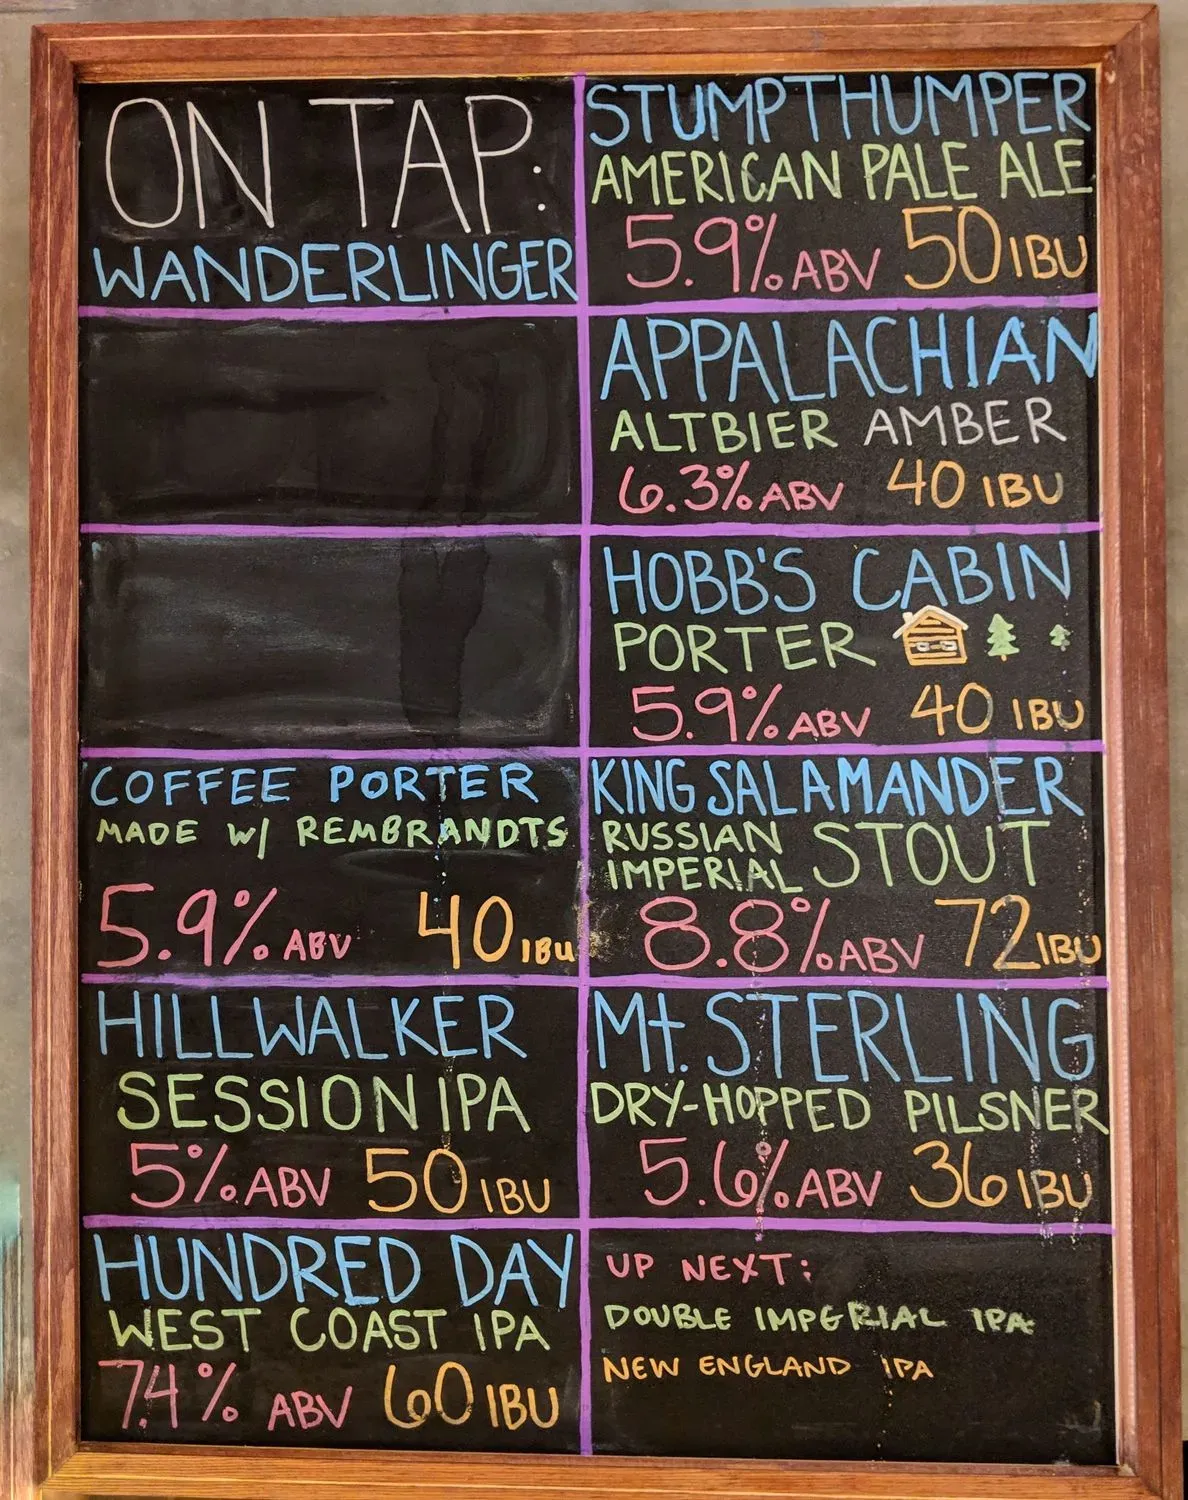 ON TAP:
WANDERLINGER
COFFEE PORTER
MADE W/ REMBRANDTS
5.9% ABV 40 IBU
HILLWALKER
SESSION IPA
5% ABV 50 IBU
HUNDRED DAY
WEST COAST IPA
7.4% ABV 60 IBU
STUMPTHUMPER
AMERICAN PALE ALE
5.9% ABV 50 IBU
APPALACHIAN
ALTBIER AMBER
6.3% ABV 40 IBU
HOBB'S CABIN
PORTER
5.9% ABV 40 IBU
KING SALAMANDER
RUSSIAN
IMPERIAL STOUT
8.8% ABV 72 IBU
Mt. STERLING
DRY-HOPPED PILSNER
5.6% ABV 36 IBU
UP NEXT:
DOUBLE IMPERIAL IPA
NEW ENGLAND IPA